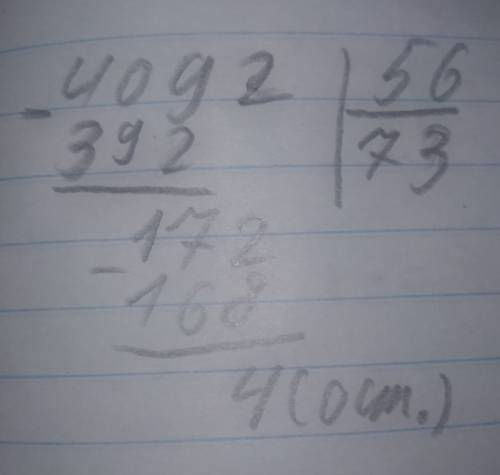 - 4092 | 56
392 | 73
- 172
168
4 (ост.)